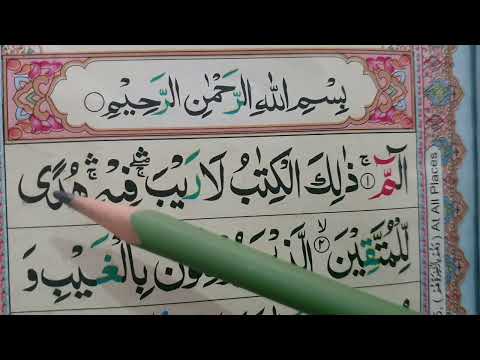 بِسْمِ اللهِ الرَّحْمٰنِ الرَّحِيْمِ ○
الٓمّٓ ۚ ۱ ذٰلِكَ الْكِتٰبُ لَا رَيْبَ ۛۖ فِيْهِ ۛۚ هُدًى
لِّلْمُتَّقِيْنَ ۙ ۲ بِالْغَيْبِ وَ
At All Places